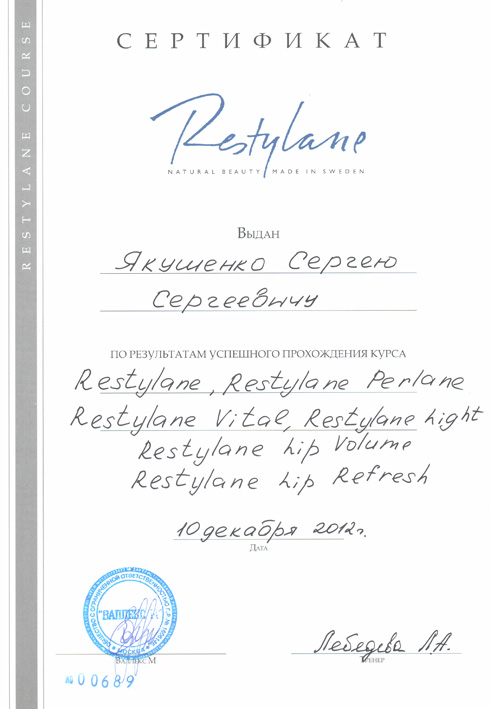 RESTYLANE COURSE
СЕРТИФИКАТ
Restylane
NATURAL BEAUTY MADE IN SWEDEN
Выдан
Якушенко Сергею
Сергеевичу
ПО РЕЗУЛЬТАТАМ УСПЕШНОГО ПРОХОЖДЕНИЯ КУРСА
Restylane, Restylane Perlane
Restylane Vital, Restylane Light
Restylane Lip Volume
Restylane Lip Refresh
10 декабря 2012г.
Дата
ОБЩЕСТВО С ОГРАНИЧЕННОЙ ОТВЕТСТВЕННОСТЬЮ
"ВАЛЛЕКС М"
МОСКВА
Лебедева Л.А.
ВАЛЛЕКС М
ТРЕНЕР
№ 00689